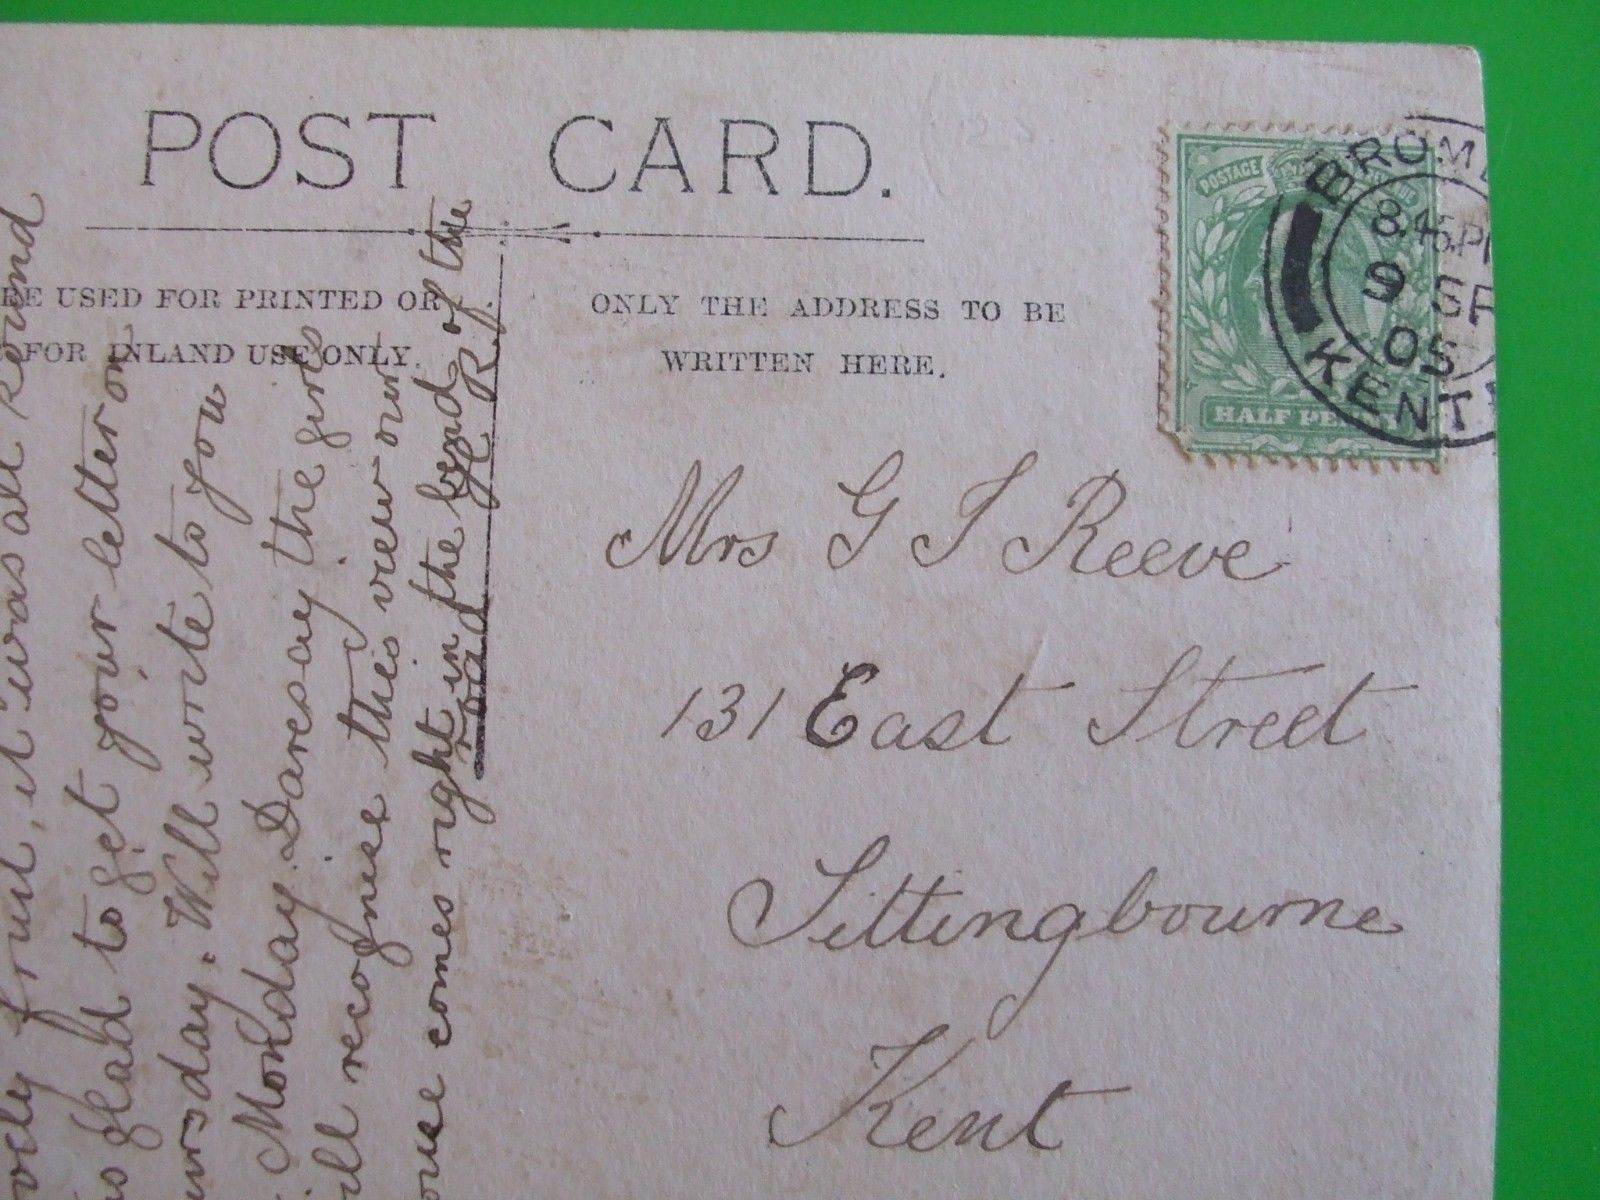 POST CARD.
RE USED FOR PRINTED OR
FOR INLAND USE ONLY.
ONLY THE ADDRESS TO BE
WRITTEN HERE.
POSTAGE
HALF PENNY
BROML
8.45PM
9 SP
05
KENT
Mrs G T Reeve
131 East Street
Sittingbourne
Kent
ovely fruit, it was all Round
as glad to get your letter on
ursday. Will write to you
Monday. Daresay the girls
ill recognise this view our
ouse comes right in the bend of the
road
R.